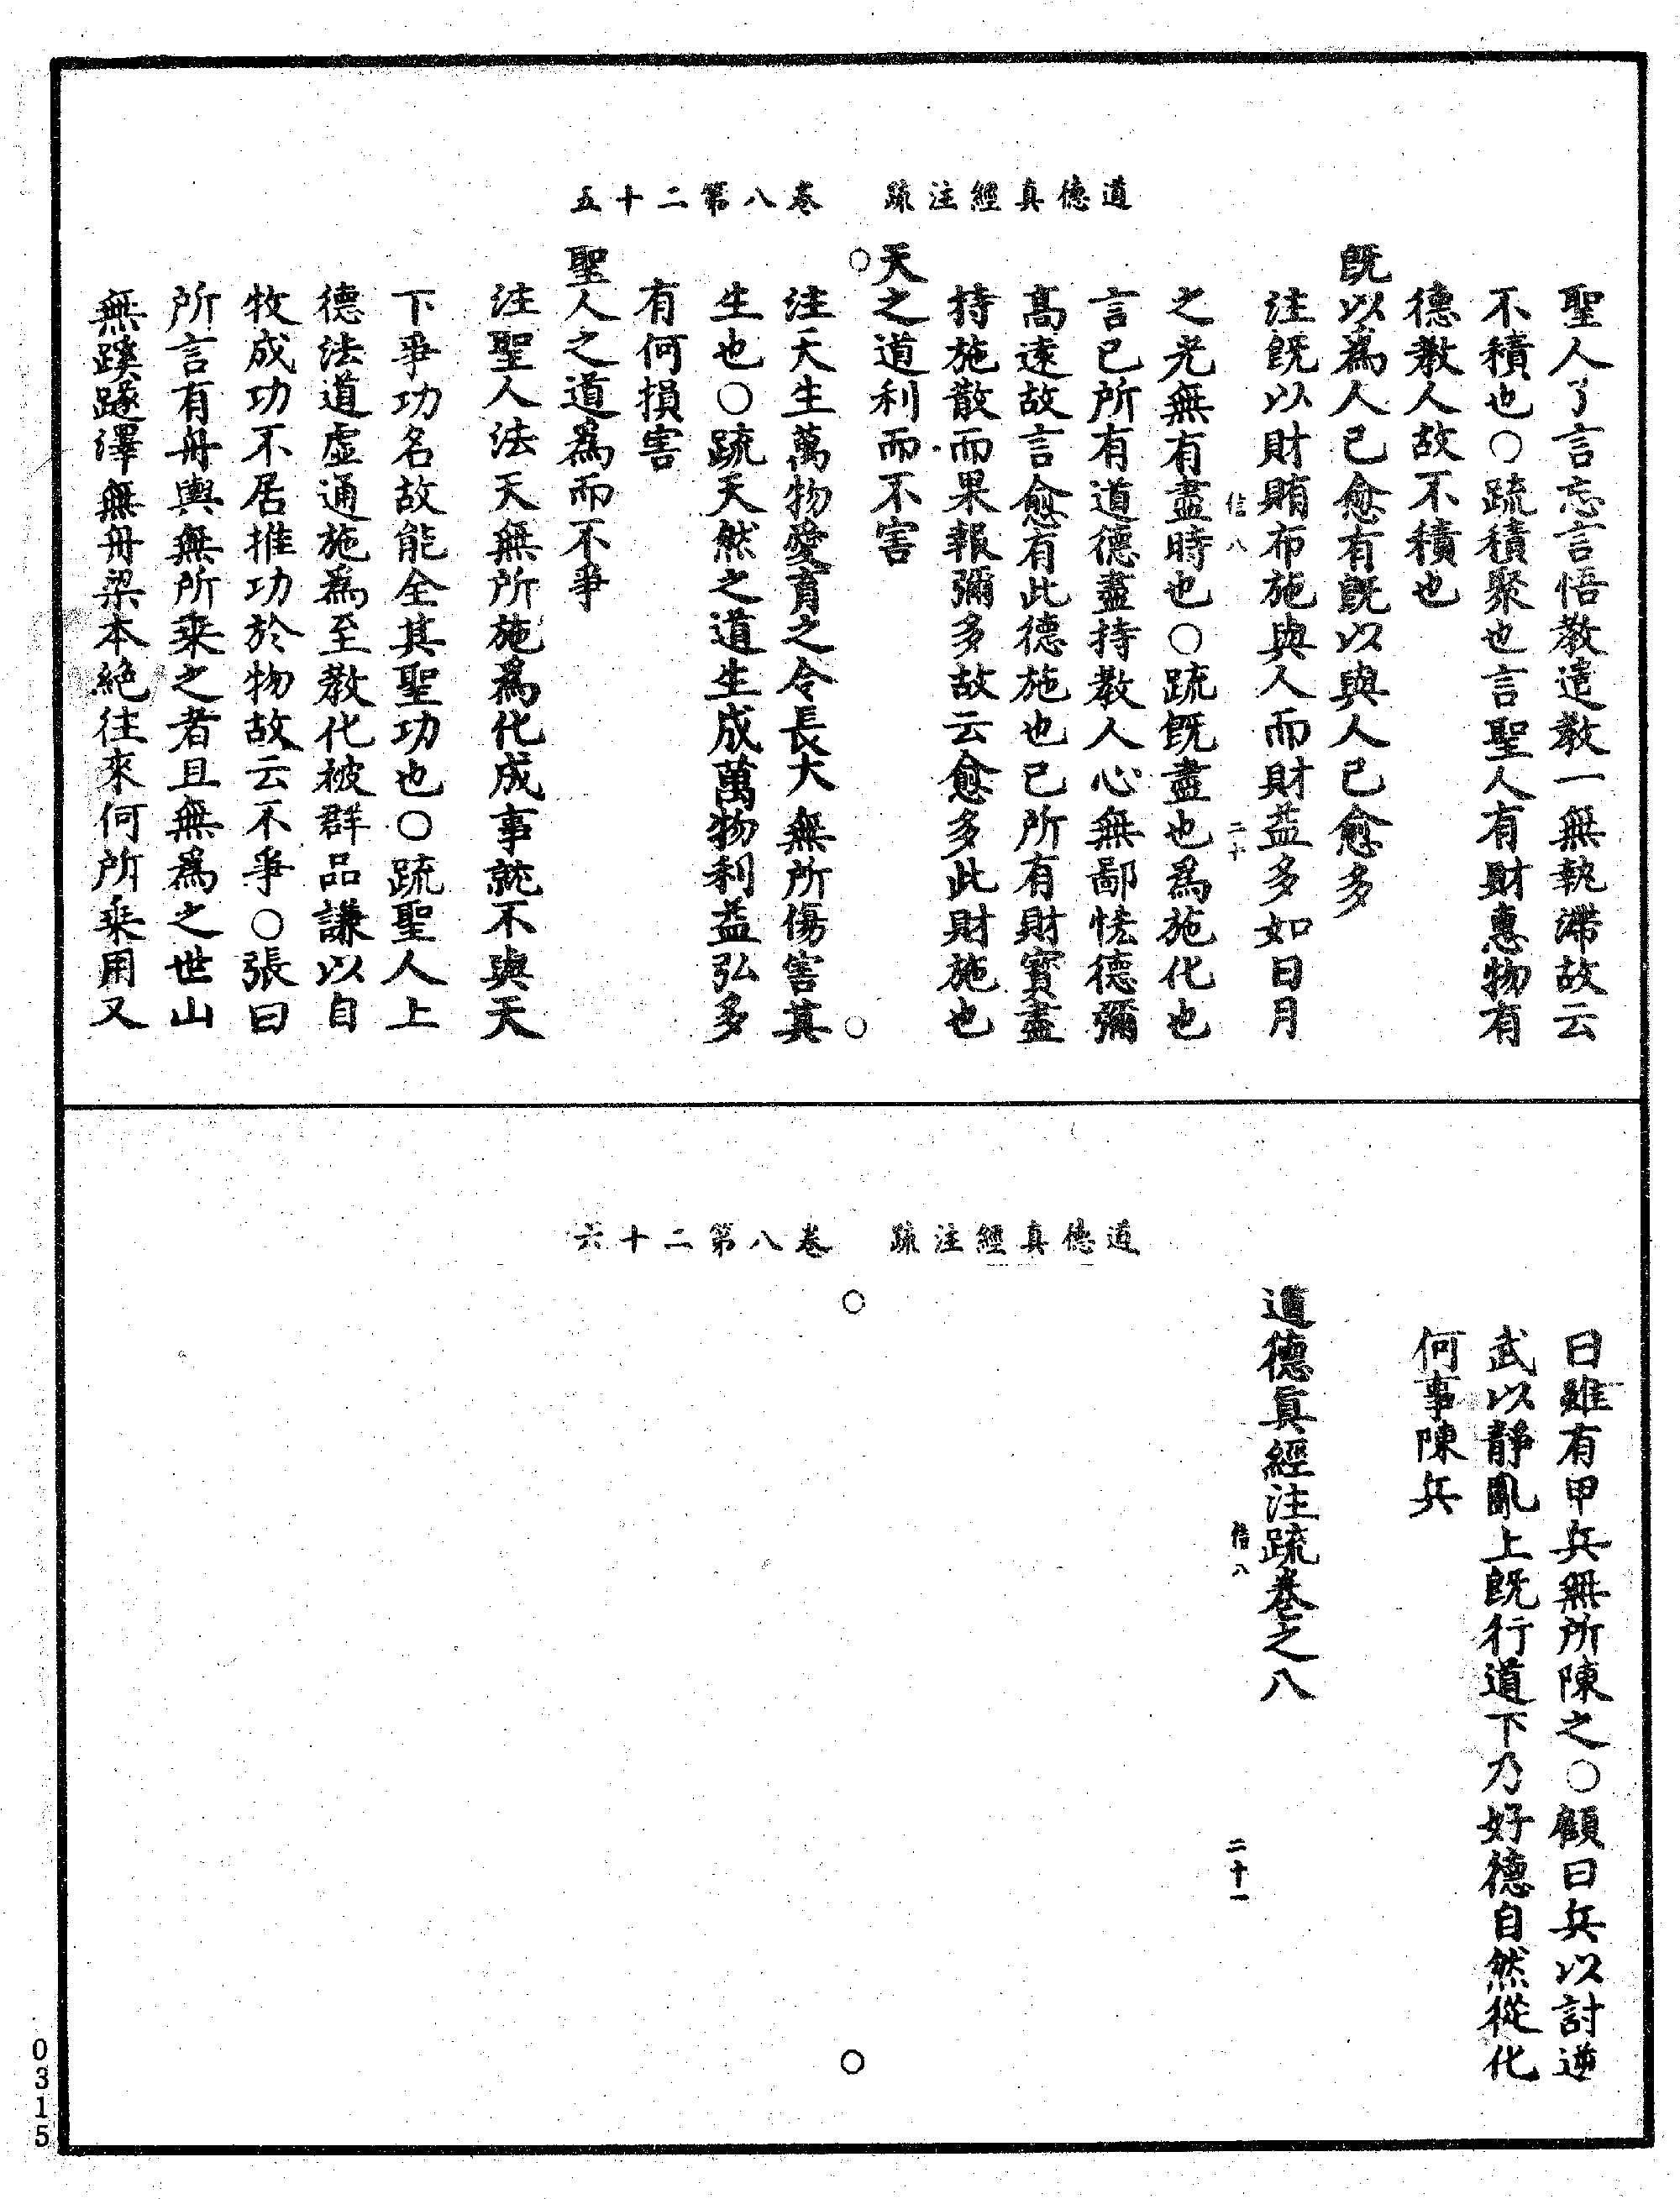 道德真經注疏　卷八第二十五
聖人了言忘言悟教遣教一無執滯故云
不積也○疏積聚也言聖人有財惠物有
德教人故不積也
既以為人己愈有既以與人己愈多
注既以財賄布施與人而財益多如日月
信八　二十
之光無有盡時也○疏既盡也為施化也
言己所有道德盡持教人心無鄙恡德彌
高遠故言愈有此德施也己所有財寳盡
持施散而果報彌多故云愈多此財施也
天之道利而不害
○　○
注天生萬物愛育之令長大無所傷害其
生也○疏天然之道生成萬物利益弘多
有何損害
聖人之道為而不爭
注聖人法天無所施為化成事就不與天
下爭功名故能全其聖功也○疏聖人上
德法道虛通施為至教化被群品謙以自
牧成功不居推功於物故云不爭○張曰
所言有舟輿無所乗之者且無為之世山
無蹊隧澤無舟梁本絕往來何所乗用又
道德真經注疏　卷八第二十六
曰雖有甲兵無所陳之○顧曰兵以討逆
武以靜亂上既行道下乃好德自然從化
何事陳兵
道德真經注疏卷之八
信八　二十一
○　○
0315